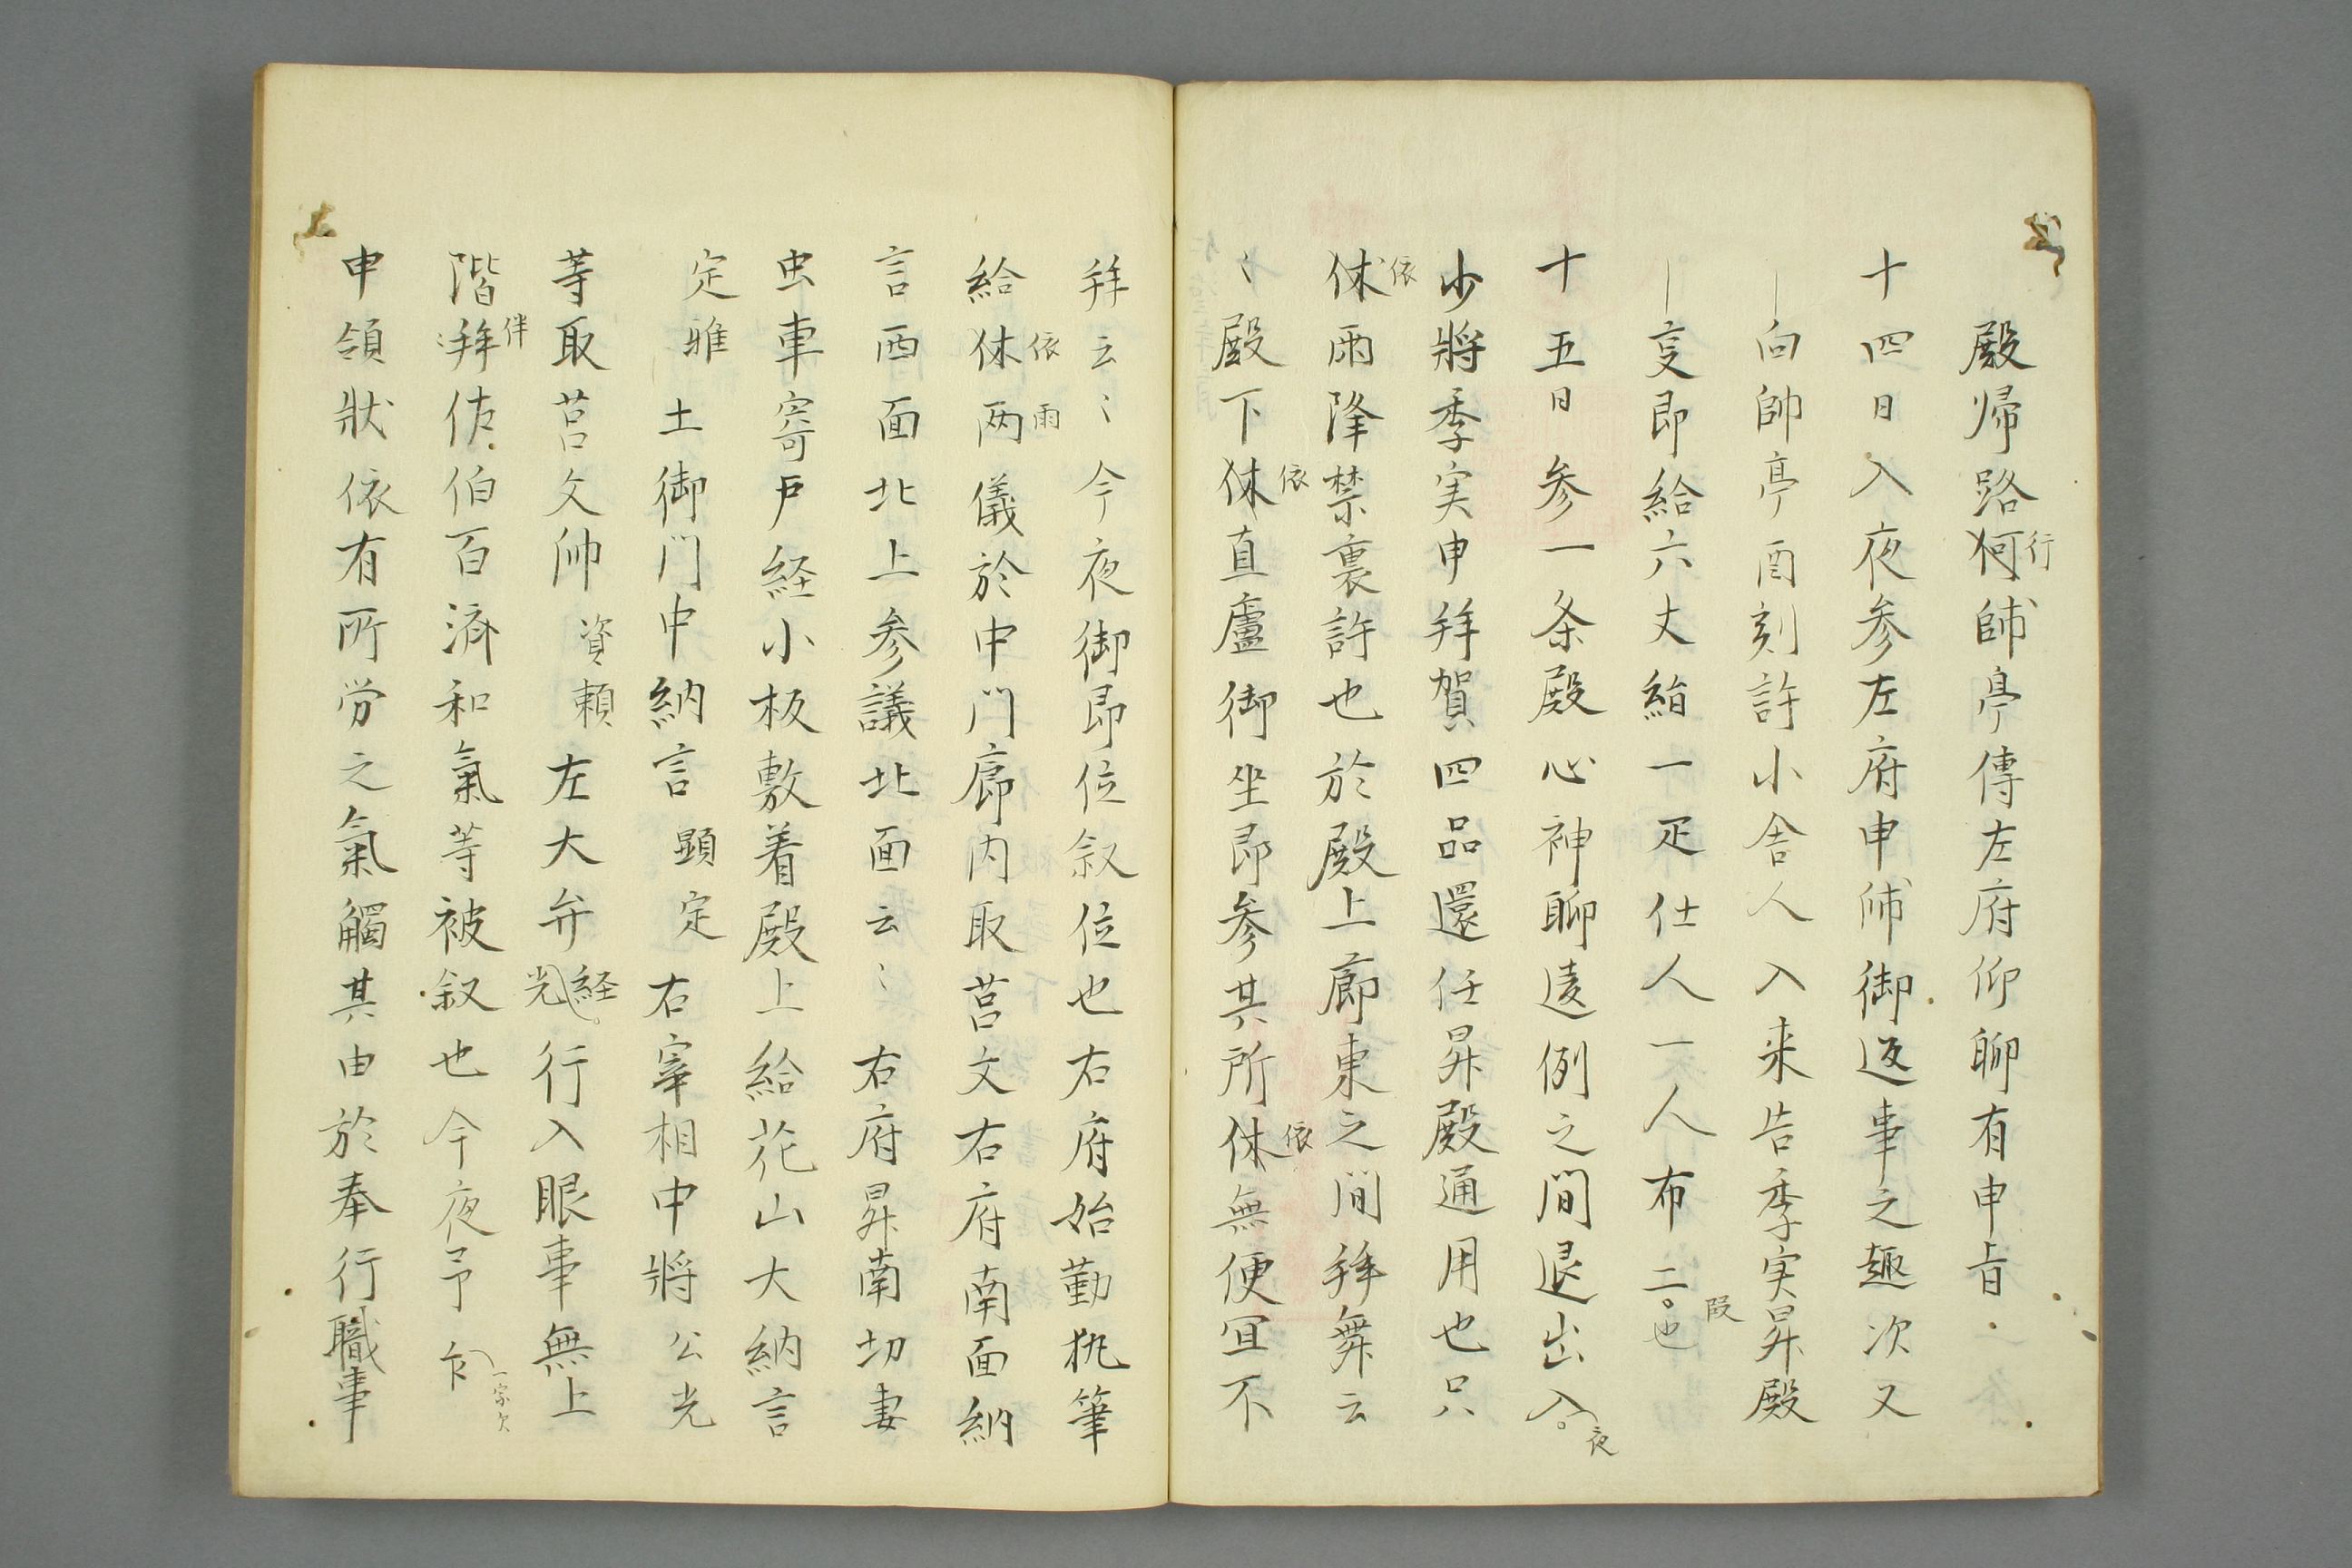 殿帰路抲行師亭傳左府仰聊有申旨
十四日入夜参左府申師御返事之趣次又
｜向帥亭酉刻許小舎人入来告季実昇殿
｜㕝即給六丈絹一疋仕人一人布二段也
十五日参一条殿心神聊違例之間退出入夜
少將季実申拜賀四品還任昇殿通用也只
休依雨降禁裏許也於殿上廊東之間拜舞云
〻殿下休依直廬御坐即参其所休依無便冝不
拜云〻今夜御即位叙位也右府始勤執筆
給休依両雨儀於中門廊内取莒文右府南面納
言西面北上参議北面云〻右府昇南切妻
虫車寄戸経小板敷着殿上給花山大納言
定雅土御門中納言顕定右宰相中將公光
等取莒文帥資頼左大弁経光行入眼事無上
階拜伴佐伯百済和氣等被叙也今夜予一字欠
申領状依有所労之氣觸其由於奉行職事